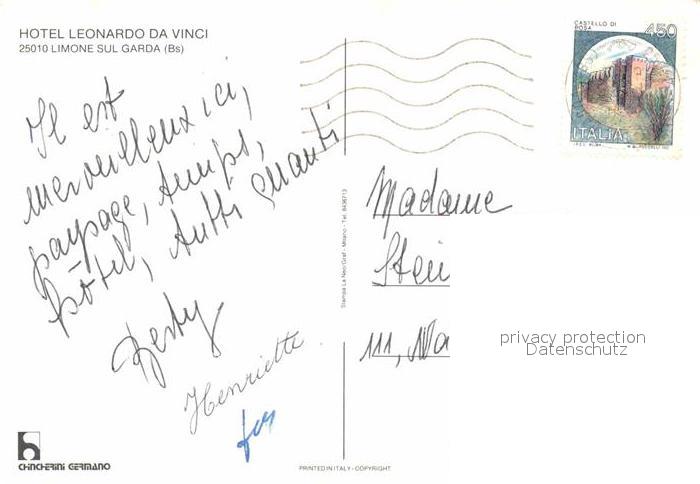 HOTEL LEONARDO DA VINCI
25010 LIMONE SUL GARDA (Bs)
CASTELLO DI
ROSA
450
ITALIA
Il est
merveilleux ici,
paysage, temps,
hôtel, tutti quanti
Henriette
Madame
111,
privacy protection
Datenschutz
Stampa La Neo/Graf - Milano - Tel. 8436713
CHINCHERINI GERMANO
PRINTED IN ITALY - COPYRIGHT